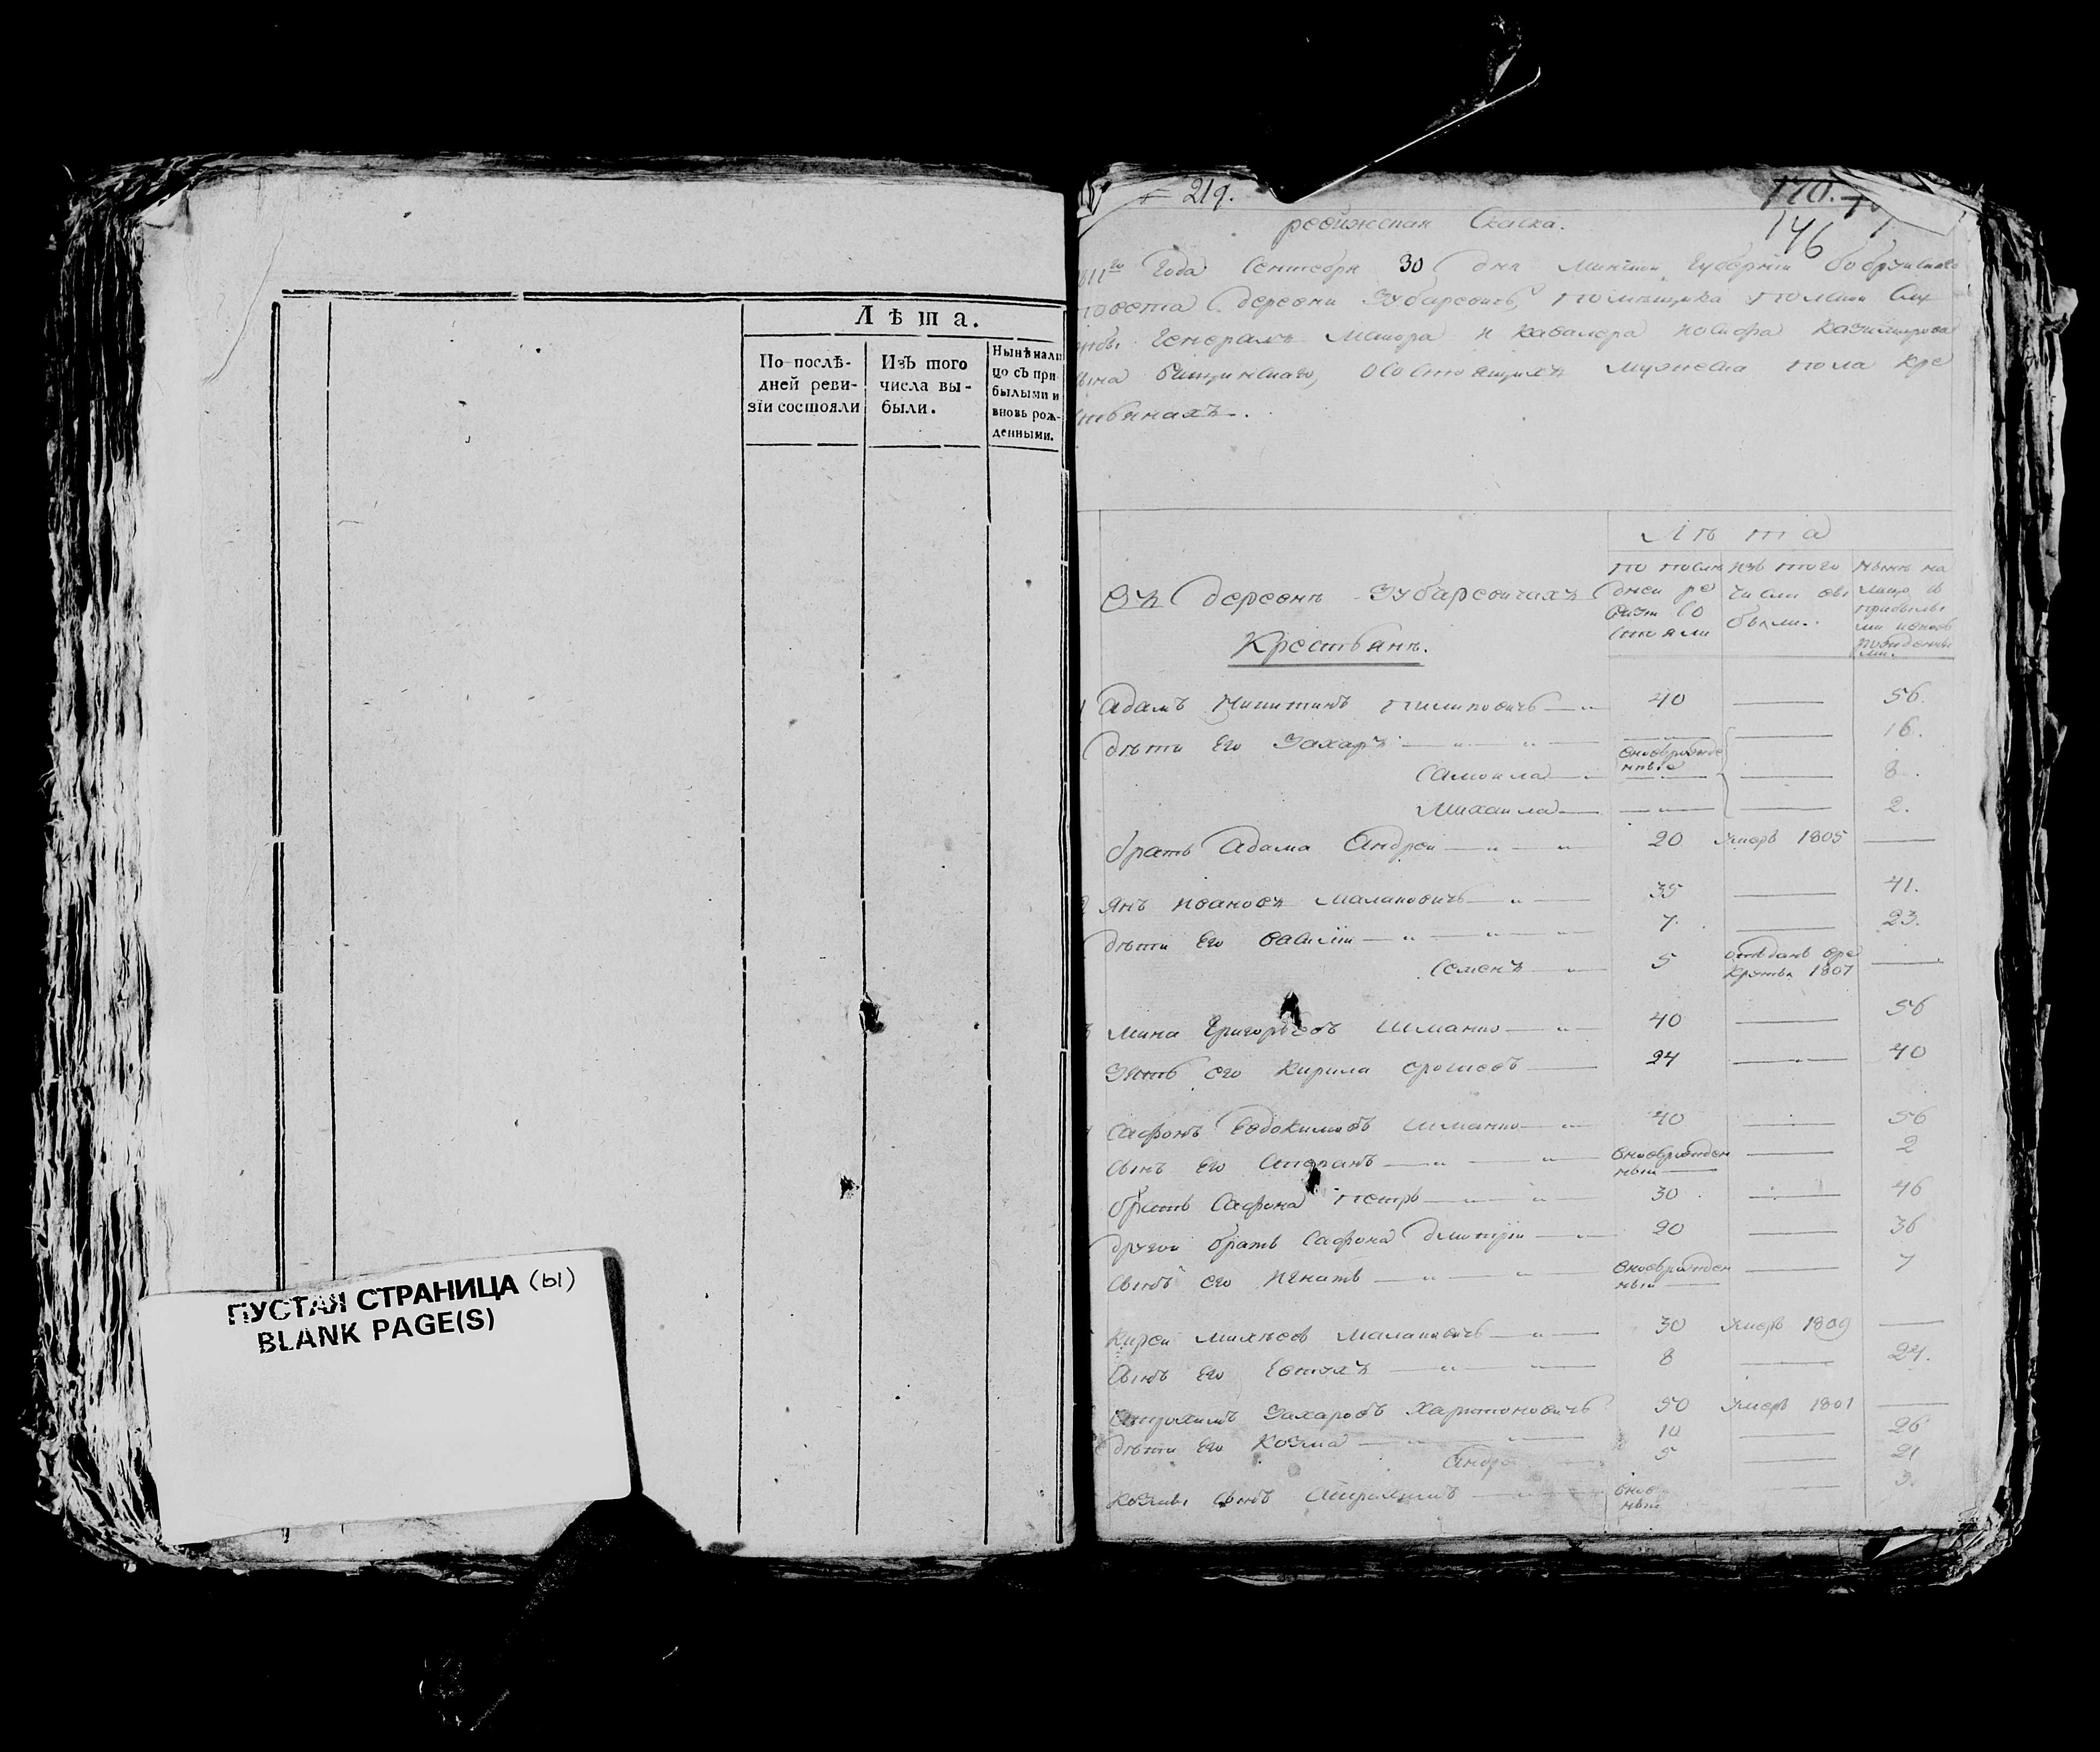 Лѣта.
По послѣ-
дней реви-
зіи состояли
Изъ того
числа вы-
были.
Нынѣ нали
цо съ при
былыми и
вновь рож-
денными.
ПУСТАЯ СТРАНИЦА (ы)
BLANK PAGE(S)
219.
170.
146
ревижская Скаска.
года Сентебря 30 дня Минской Губерніи Бобруйского
повета деревни Зубаревичь, помѣщика
Генералъ Маиора и Кавалера Иосифа Казимирова
сына осостоящихъ мужеска пола кре
стьянахъ.
Лѣта
По после
дней ре
визіи со
стояли
изъ того
числа вы
были.
Нынѣ на
лицо съ
прибылы
ми и вновь
рожденны
ми.
Въ деревнѣ Зубаревичахъ
Крестьянъ.
1 Адамъ Никитинъ Пилиповичь 40 56.
дѣти Его Захаръ вновърожде
нные 16.
Самоила 8.
Михаила 2.
братъ Адама Андрей 20 Умеръ 1805
2 Янъ Ивановъ Малаковичь 35 41.
дѣти Его Василіи 7. 23.
Семенъ 5 отъданъ вре
круты 1807
3 Мина Григорьевъ Шманко 40 56
Зять его Кирила 24 40
4 Сафонъ Евдокимовъ Шманко 40 56
сынъ Его вновърожден
ныи 2
братъ Сафона Петръ 30 46
другои братъ Сафона Дмитріи 20 36
сынъ его Игнатъ вновърожден
ныи 7
Кирей Михѣевъ Малаковичь 30 Умеръ 1809
сынъ Его Евтухъ 8 24.
Захаровъ Харитоновичь 50 Умеръ 1801
дѣти Его Козма 10 26
5 21
Козмы сынъ 3.